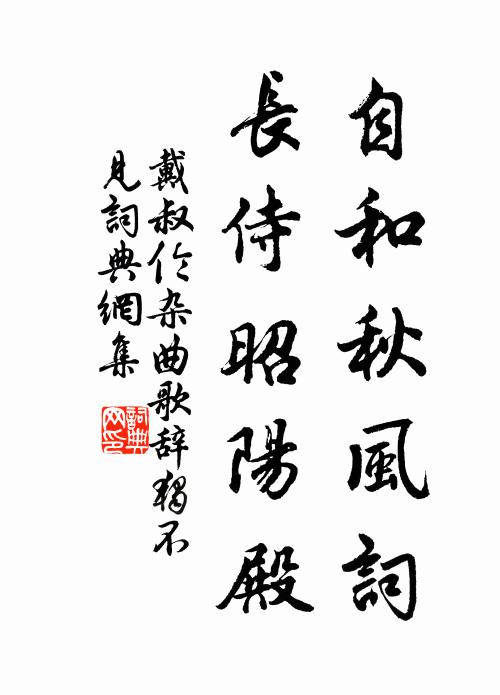 自和秋風詞
長侍昭陽殿
戴叔伦杂曲歌辞独不
見詞典網集
詞典
网印